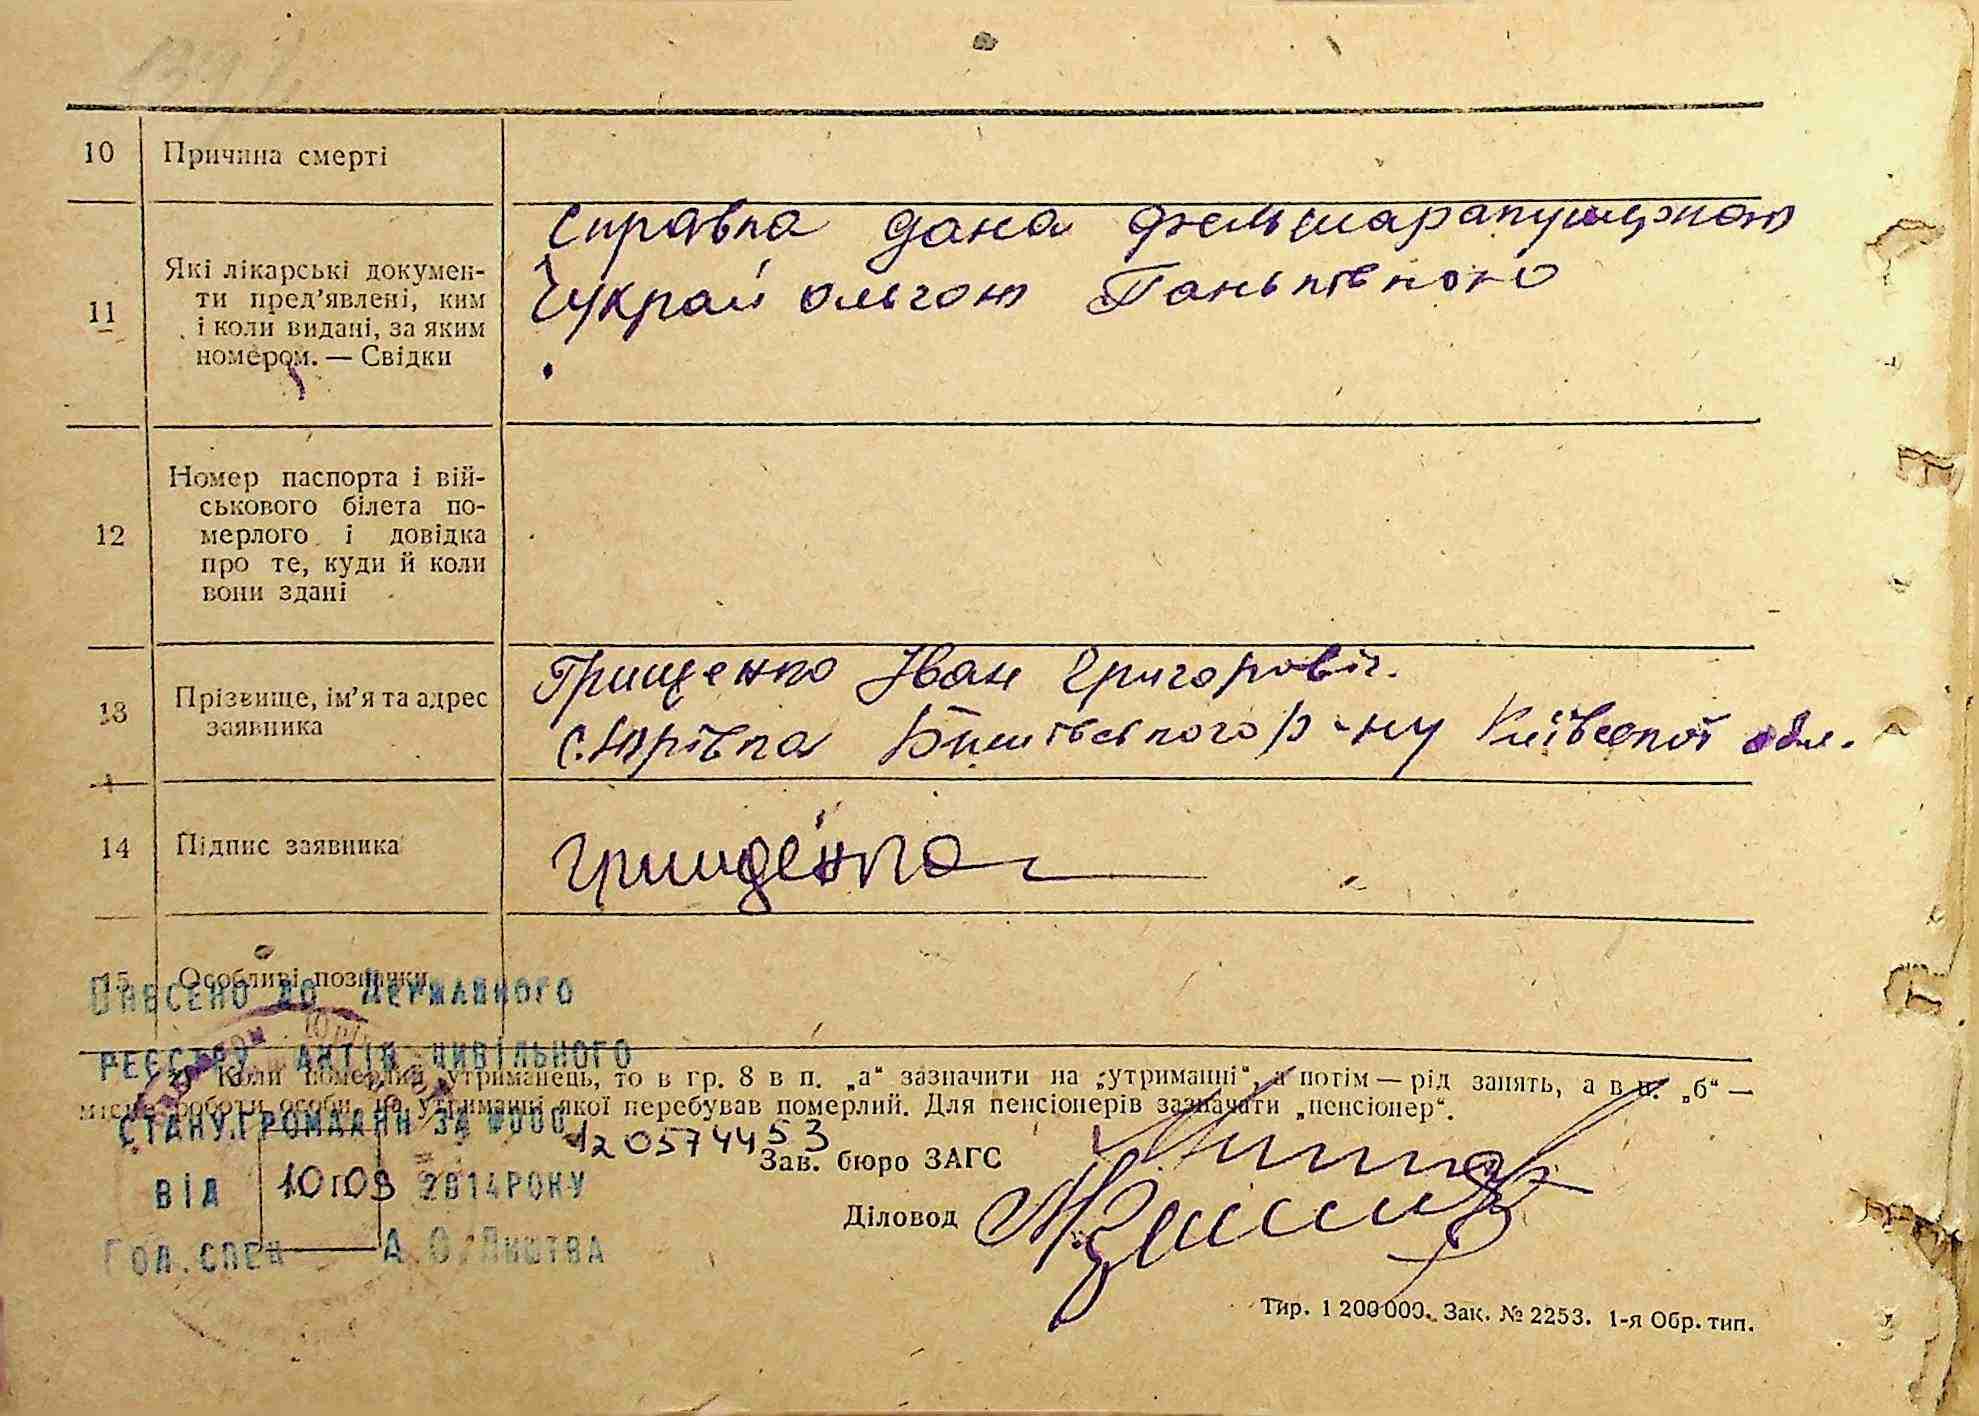 10 Причина смерті
11 Які лікарські докумен-
ти пред’явлені, ким
і коли видані, за яким
номером. — Свідки
Справка дана фельшарапунктом
Чукрай Ольгою
12 Номер паспорта і вій-
ськового білета по-
мерлого і довідка
про те, куди й коли
вони здані
13 Прізвище, ім’я та адрес
заявника
Грищенко Іван Григоровіч.
с. Юрівка Бишівського р-ну Київської обл.
14 Підпис заявника
Грищенко
15 Особливі позначки
Внесено до Державного
реєстру актів цивільного
Коли померлий утриманець, то в гр. 8 в п. „а“ зазначити на „утриманні“, а потім — рід занять, а в п. „б“ —
місце роботи особи, на утриманні якої перебував померлий. Для пенсіонерів зазначати „пенсіонер“.
стану громадян за №000
120574453
Зав. бюро ЗАГС
від 10 09 2014 року
Діловод
Гол. спец А.О. Листва
Тир. 1 200 000. Зак. № 2253. 1-я Обр. тип.